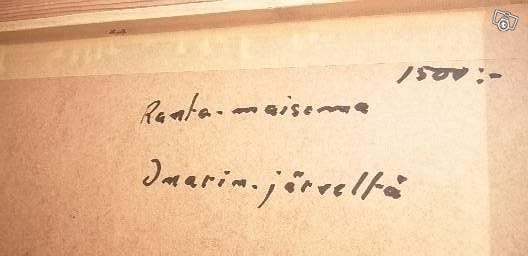 1500:-
Ranta-maisema
Inarin-järveltä